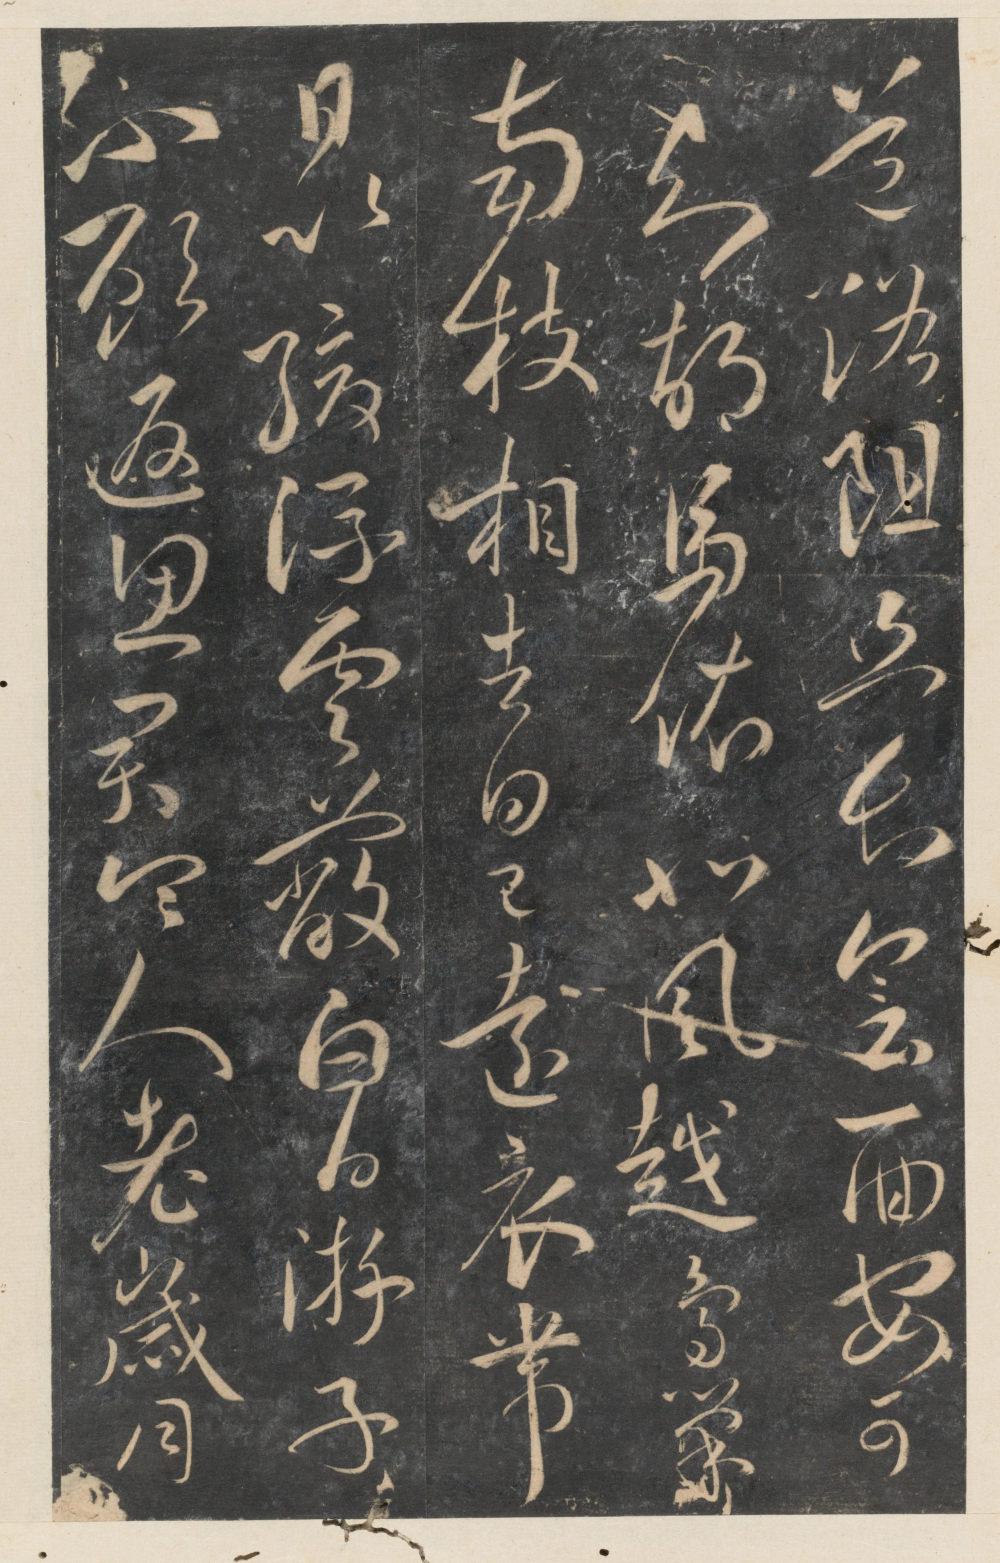 道路阻且長會面安可
知胡馬依北風越鳥巢
南枝相去日已遠衣帶
日以緩浮雲蔽白日游子
不顧返思君令人老歲月